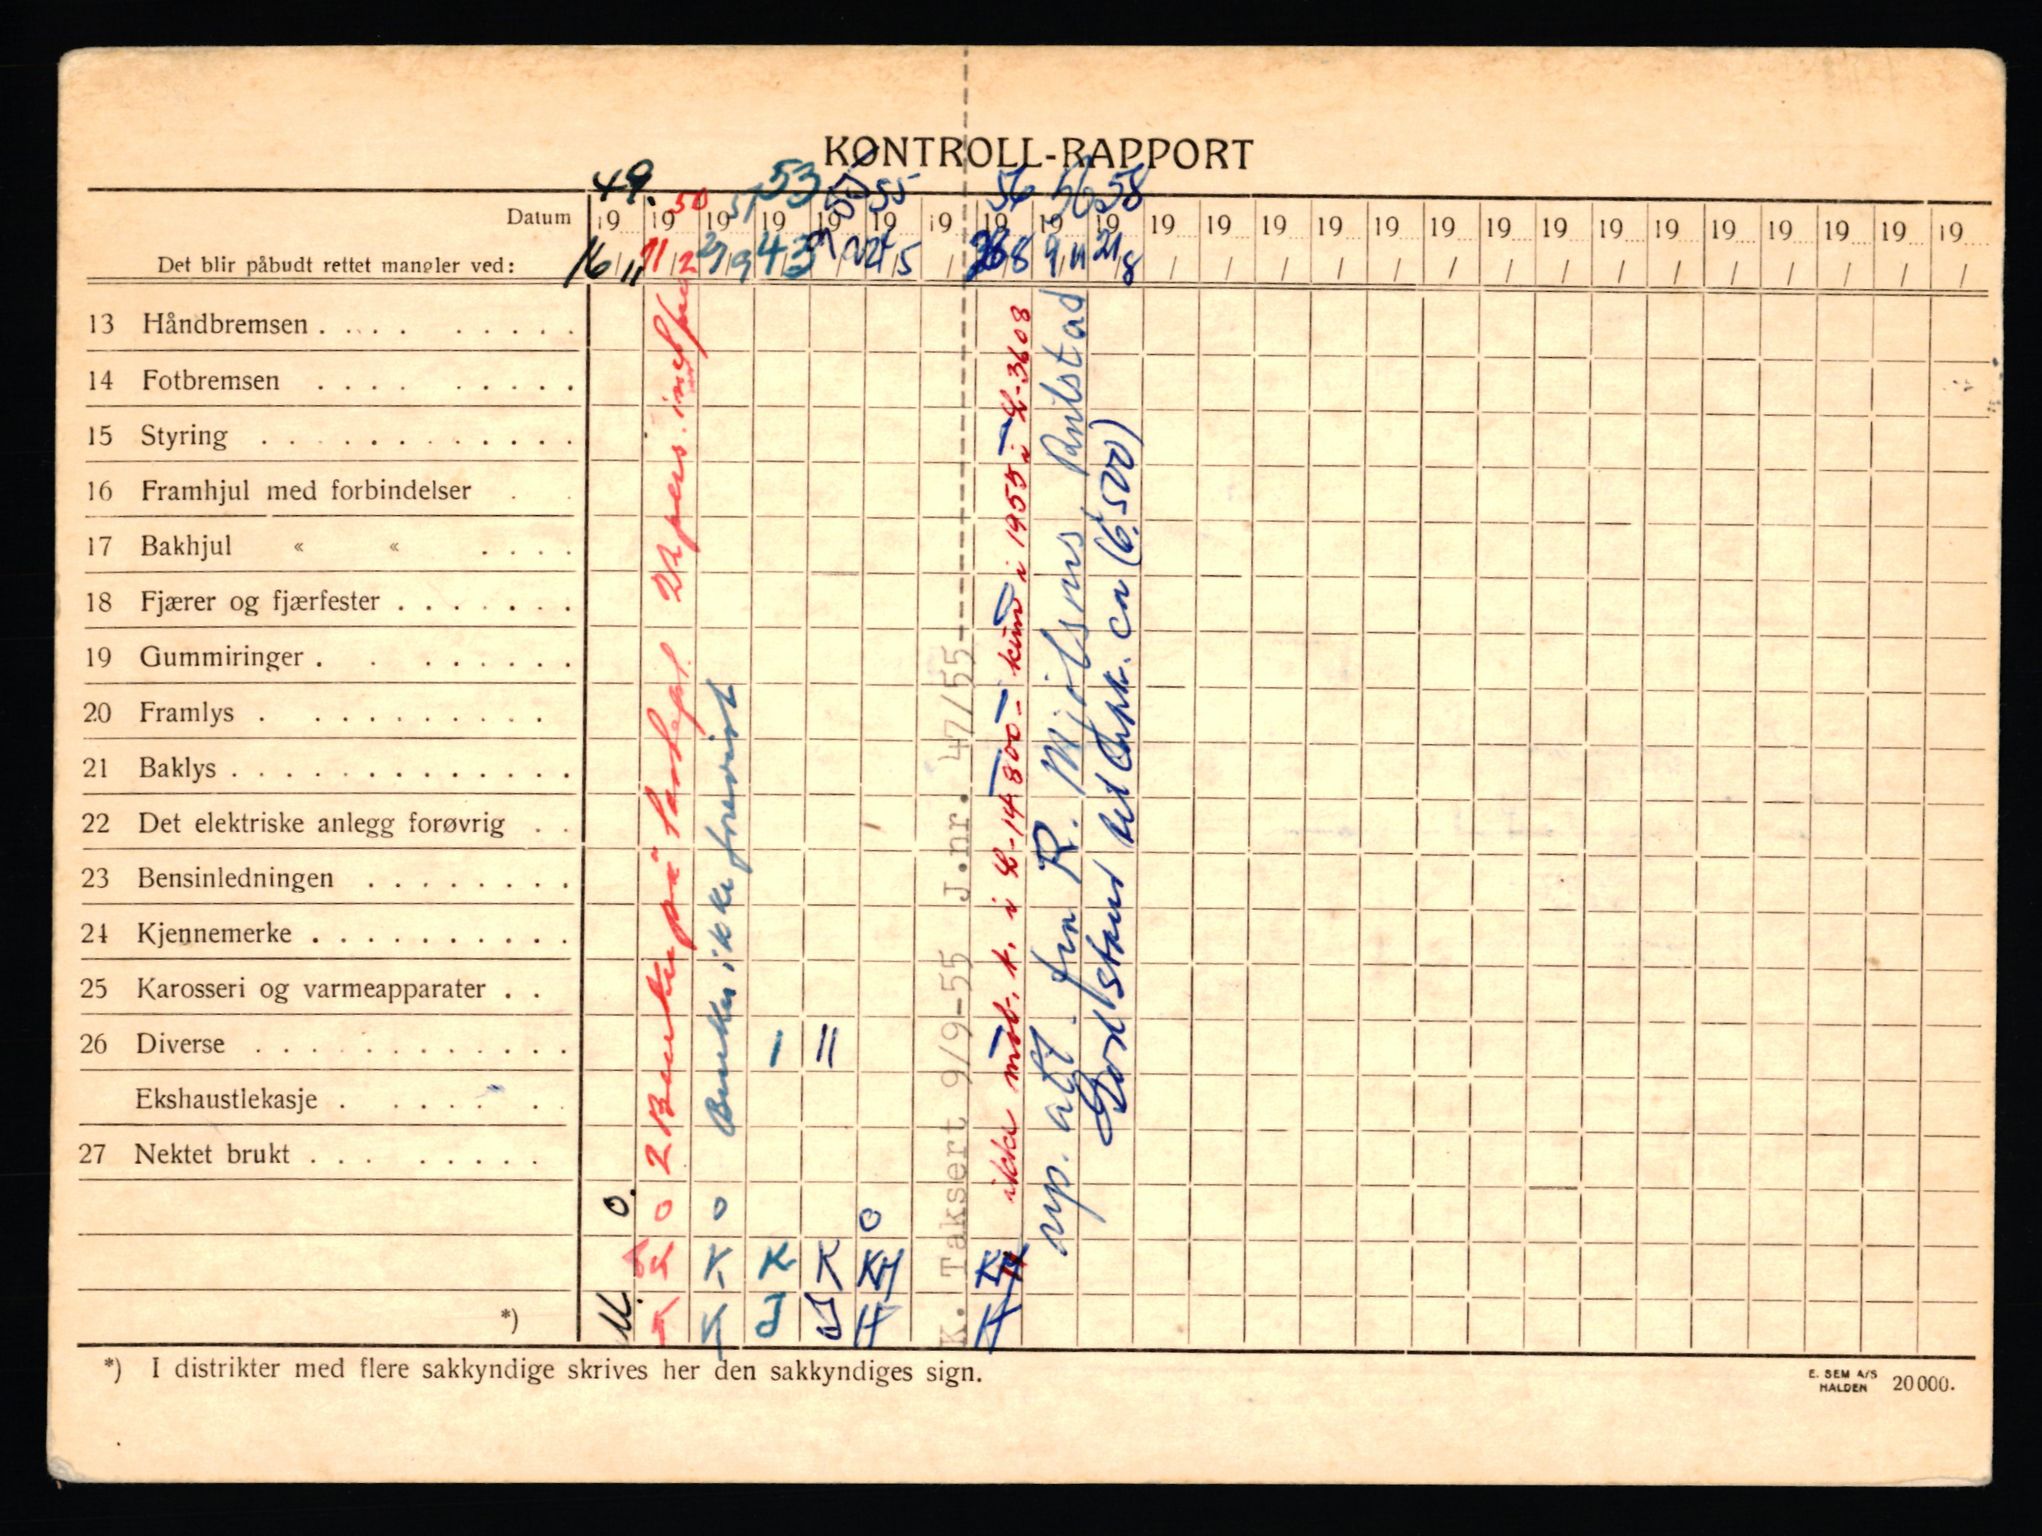 KONTROLL-RAPPORT
49. 50 51 53 55 55 56 56 58
Datum 19 19 19 19 19 19 19 19 19 19 19 19 19 19 19 19 19 19 19 19 19 19 19 19 19
Det blir påbudt rettet mangler ved: 16/11 11/2 27/9 4/3 24/5 28/8 9/11 21/8
13 Håndbremsen
14 Fotbremsen
15 Styring
16 Framhjul med forbindelser
17 Bakhjul « «
18 Fjærer og fjærfester
19 Gummiringer
20 Framlys
21 Baklys
22 Det elektriske anlegg forøvrig
23 Bensinledningen
24 Kjennemerke
25 Karosseri og varmeapparater
26 Diverse I II
Ekshaustlekasje
27 Nektet brukt
O. O O O
K K K KH KH
M. K K J J H H
2 Benker på
Benker ikke forevist
K. Taksert 9/9-55 J.nr. 47/55-
ikke mot. k. i L-14800 - kun i 1955 i L-3608
rep. att. fra R. Mjølsnes
ca (6.500)
*)
*) I distrikter med flere sakkyndige skrives her den sakkyndiges sign.
E. SEM A/S
HALDEN 20000.